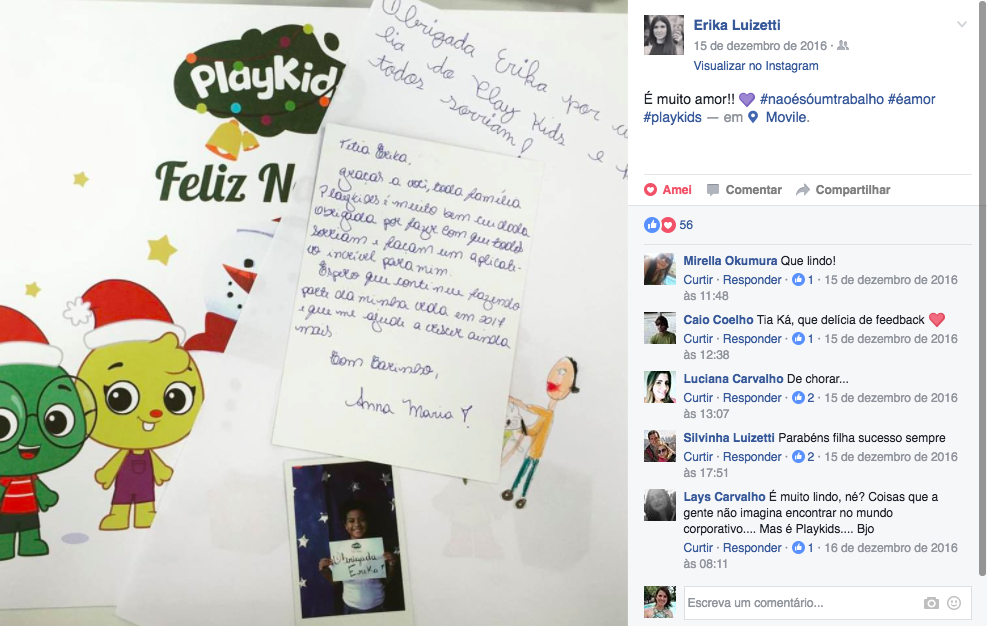 PlayKid
Feliz N
Obrigada Erika por
lia do Play Kids e
todos sorriam!
Titia Erika,
graças a você, toda família
Playkids é muito bem cuidada
Obrigada por fazer com que todos
sorriam e façam um aplicati-
vo incrível para mim.
Espero que continue fazendo
parte da minha vida em 2017
e que me ajude a crescer ainda
mais
Com Carinho,
Anna Maria
Obrigada
Erika!
Erika Luizetti
15 de dezembro de 2016 ·
Visualizar no Instagram
É muito amor!! 💜 #naoésóumtrabalho #éamor
#playkids — em Movile.
Amei Comentar Compartilhar
56
Mirella Okumura Que lindo!
Curtir · Responder · 1 · 15 de dezembro de 2016
às 11:48
Caio Coelho Tia Ká, que delícia de feedback ❤
Curtir · Responder · 1 · 15 de dezembro de 2016
às 12:38
Luciana Carvalho De chorar...
Curtir · Responder · 2 · 15 de dezembro de 2016
às 13:07
Silvinha Luizetti Parabéns filha sucesso sempre
Curtir · Responder · 2 · 15 de dezembro de 2016
às 17:51
Lays Carvalho É muito lindo, né? Coisas que a
gente não imagina encontrar no mundo
corporativo.... Mas é Playkids.... Bjo
Curtir · Responder · 1 · 16 de dezembro de 2016
às 08:11
Escreva um comentário...